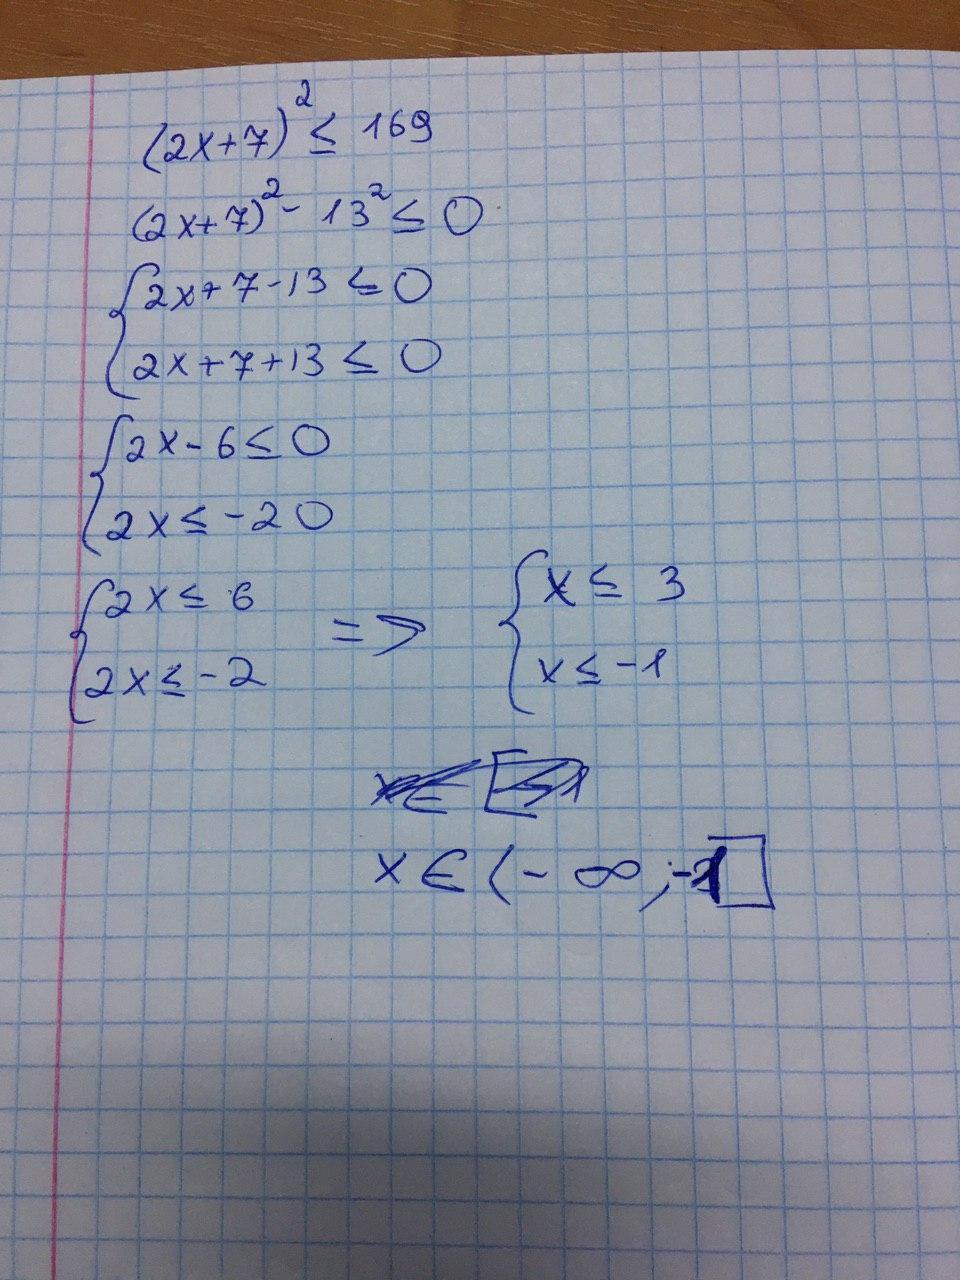 (2x+7)² ≤ 169
(2x+7)² - 13² ≤ 0
{2x+7-13 ≤ 0
2x+7+13 ≤ 0
{2x-6 ≤ 0
2x ≤ -20
{2x ≤ 6 => {x ≤ 3
2x ≤ -2 x ≤ -1
x ∈ (-∞; -1]